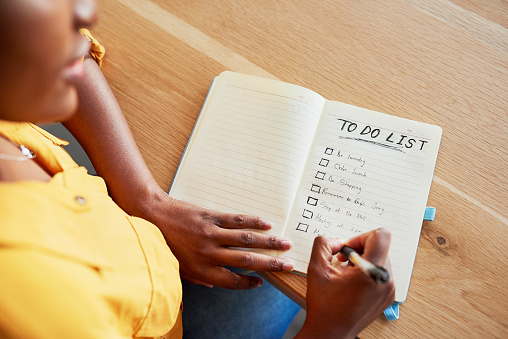 TO DO LIST
Do laundry
Order lunch
Do Shopping
Remember to book
Stop at the
Meeting at